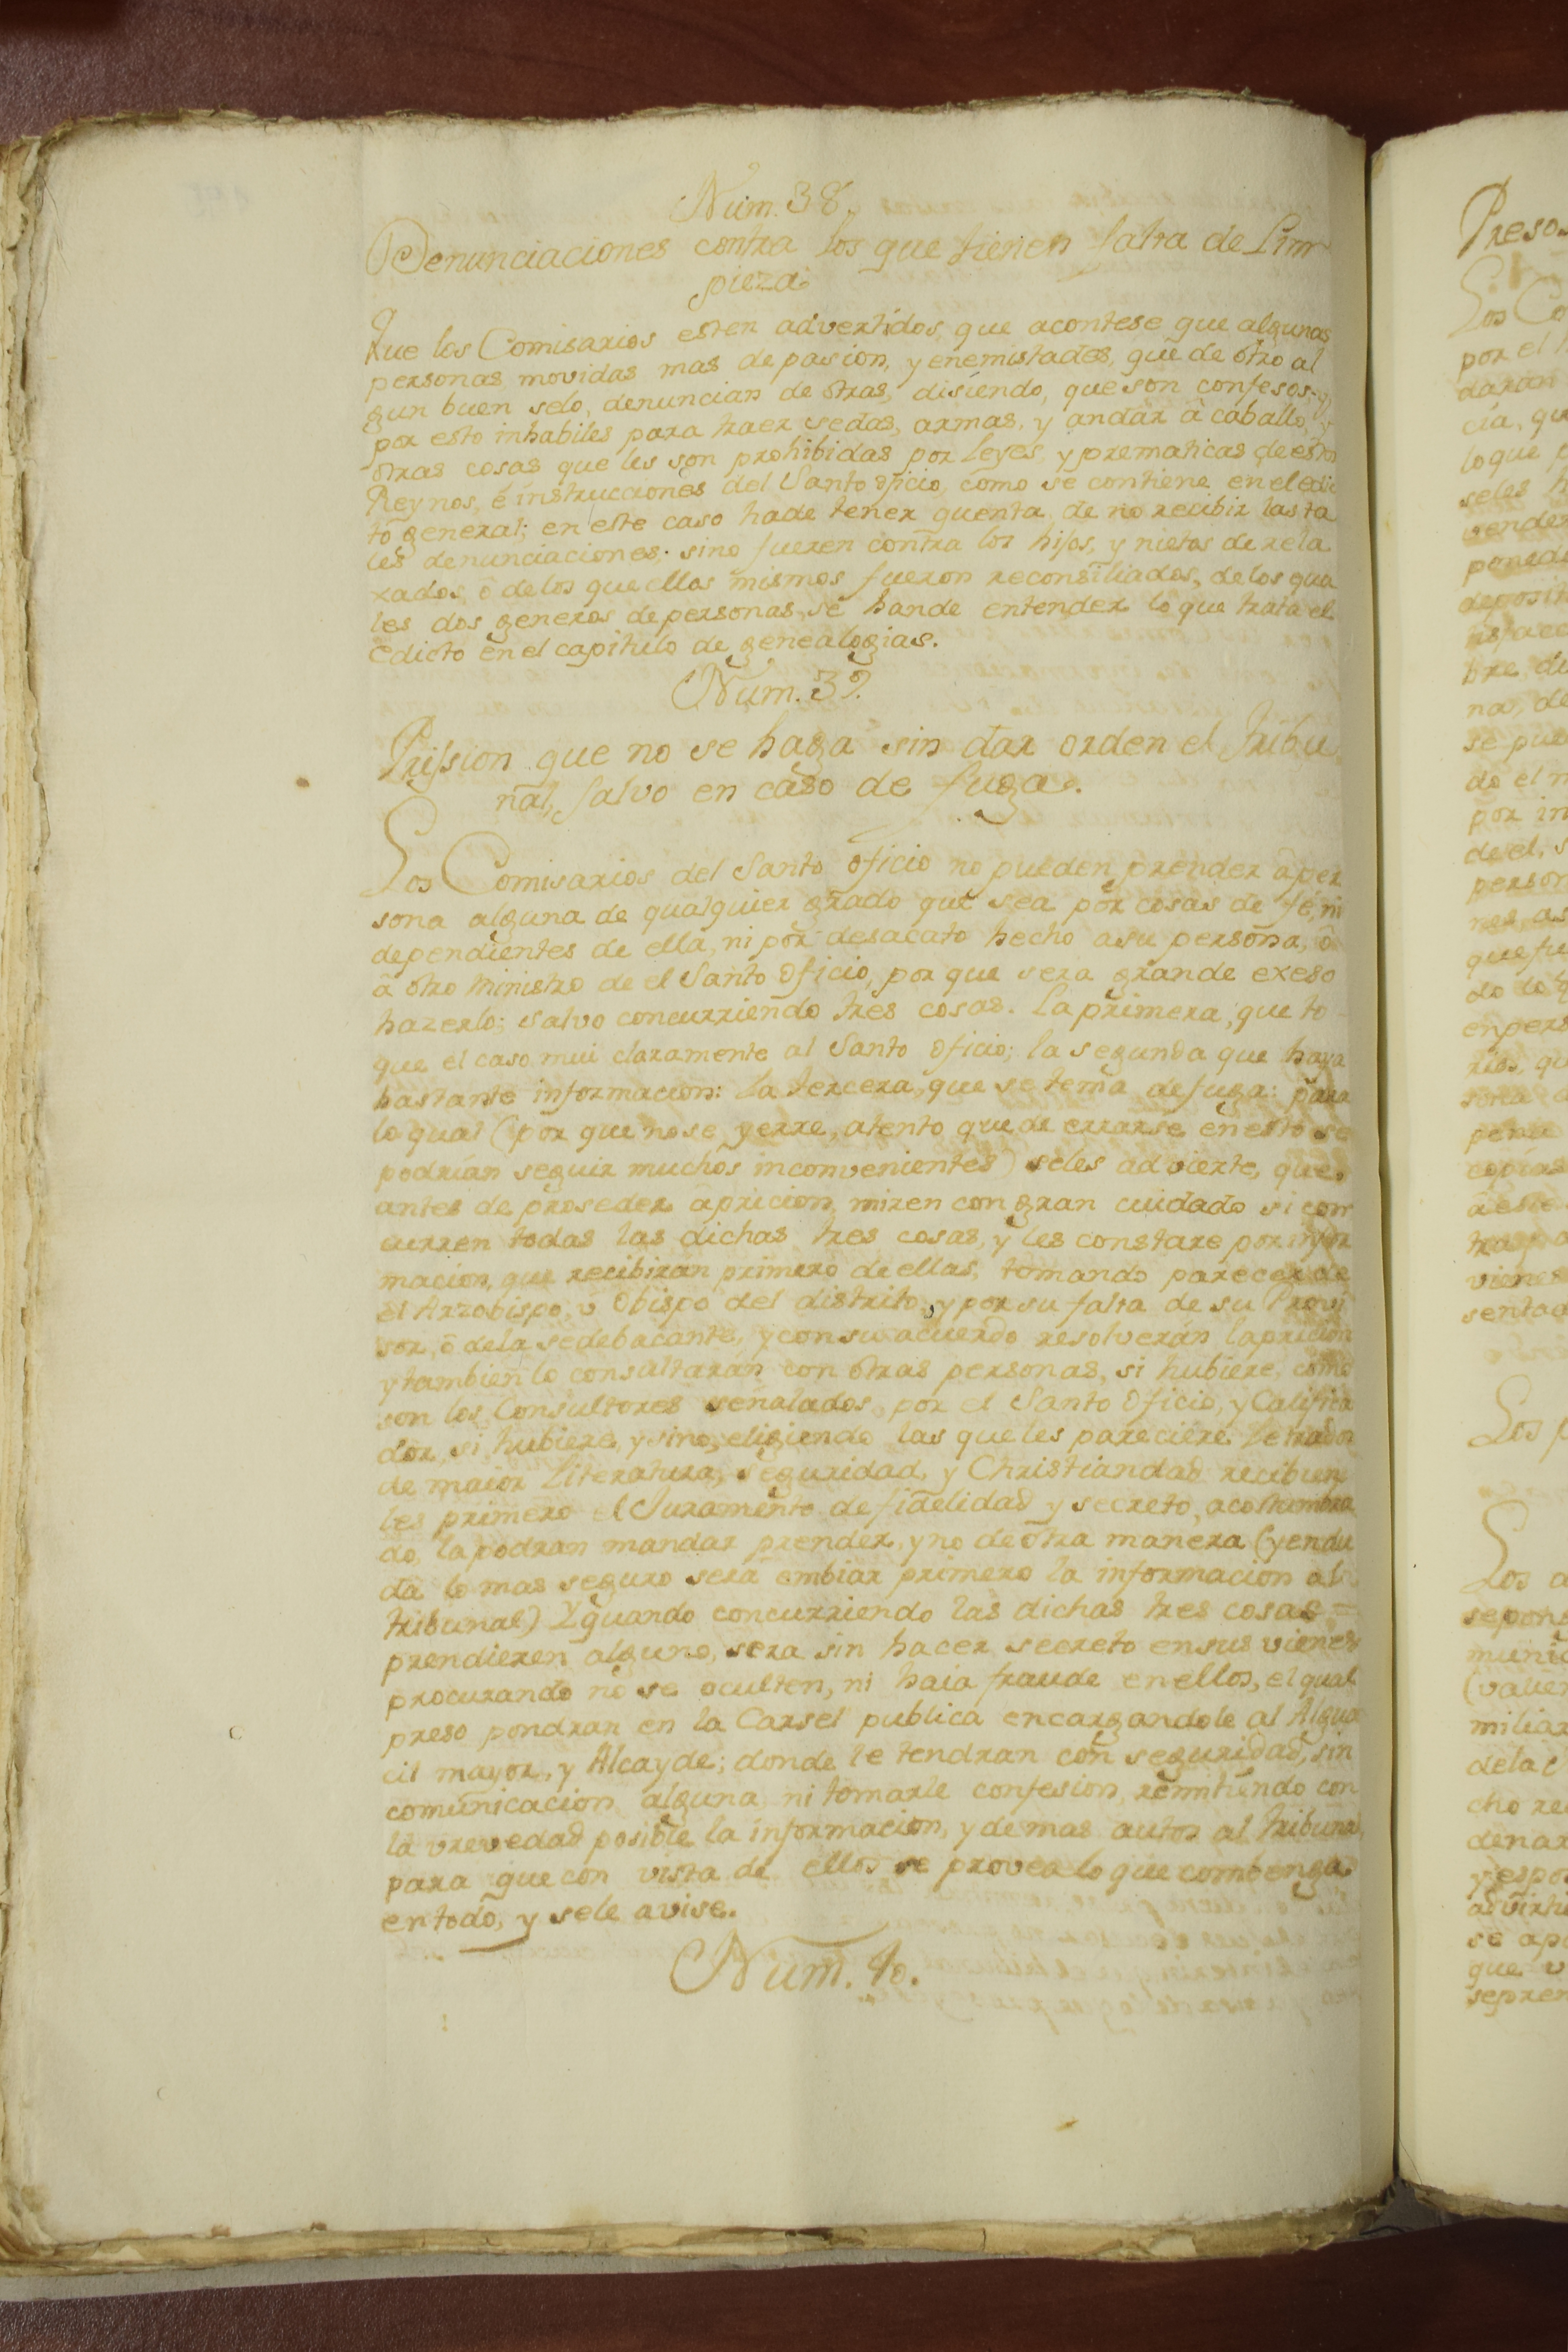 Num. 38.
Denunciaciones contra los que tienen falta de Lim
pieza.
Que los Comisarios esten advertidos, que acontese que algunas
personas movidas mas de pasion, y enemistades, que de ôtro al
gun buen selo, denuncian de ôtras, disiendo, que son confesos, y
por esto inhabiles para traer sedas, armas, y andar â caballo, y
ôtras cosas que les son prohibidas por Leyes, y prematicas de estos
Reynos, é instrucciones del Santo oficio, como se contiene en el edic
to general; en este caso hade tener quenta, de no recibir las ta
les denunciaciones; sino fueren contra los hijos, y nietos de rela
xados, ô de los que ellos mismos fueron reconsiliados, de los qua
les dos generos de personas, se hande entender lo que trata el
edicto en el capitulo de genealogias.
Num. 39.
Prission que no se haga sin dar orden el Tribu
nal, salvo en caso de fuga.
Los Comisarios del Santo oficio no pueden prender â per
sona alguna de qualquier grado que sea por cosas de fe, ni
dependientes de ella, ni por desacato hecho a su persona, ô
â ôtro Ministro de el Santo Oficio, por que sera grande exeso
hazerlo; salvo concurriendo tres cosas. La primera, que to
que el caso mui claramente al Santo Oficio; la segunda que haya
bastante informacion: la tercera, que se tema de fuga: para
lo qual (por que no se yerre, atento que de errarse en esto se
podrian seguir muchos inconvenientes) seles advierte, que
antes de proseder â pricion, miren con gran cuidado si con
curren todas las dichas tres cosas, y les constare por infor
macion, que recibiran primero de ellas, tomando parecer de
el Arzobispo, û Obispo del distrito, y por su falta de su Provi
sor, ô dela sedebacante, y con su acuerdo resolverán la pricion
y tambien lo consultaran con ôtras personas, si hubiere, como
son los Consultores señalados, por el Santo Oficio, y Califica
dor, si hubiere, y sino, eligiendo las que les pareciere Letrados
de maior Literatura, seguridad, y Christiandad recibien
les primero el Juramento de fidelidad y secreto, acostumbra
do, la podran mandar prender, y no de ôtra manera (y en du
da lo mas seguro será embiar primero la informacion al
tribunal) Y quando concurriendo las dichas tres cosas =
prendieren alguno, sera sin hacer secreto en sus vienes
procurando no se oculten, ni haia fraude en ellos, el qual
preso pondran en la Carsel publica encargandole al Algua
cil mayor, y Alcayde; donde le tendran con seguridad, sin
comunicacion alguna ni tomarle confesion, remitiendo con
la vrevedad posible la informacion, y demas autos al tribunal
para que con vista de ellos se provea lo que combenga
en todo, y sele avise.
Num. 40.